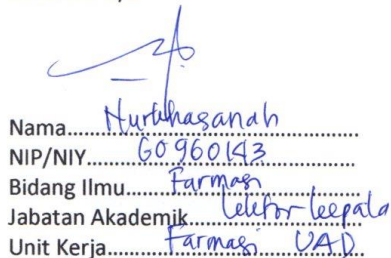 Nama Nurkhasanah
NIP/NIY 60960143
Bidang Ilmu Farmasi
Jabatan Akademik Lektor kepala
Unit Kerja Farmasi UAD